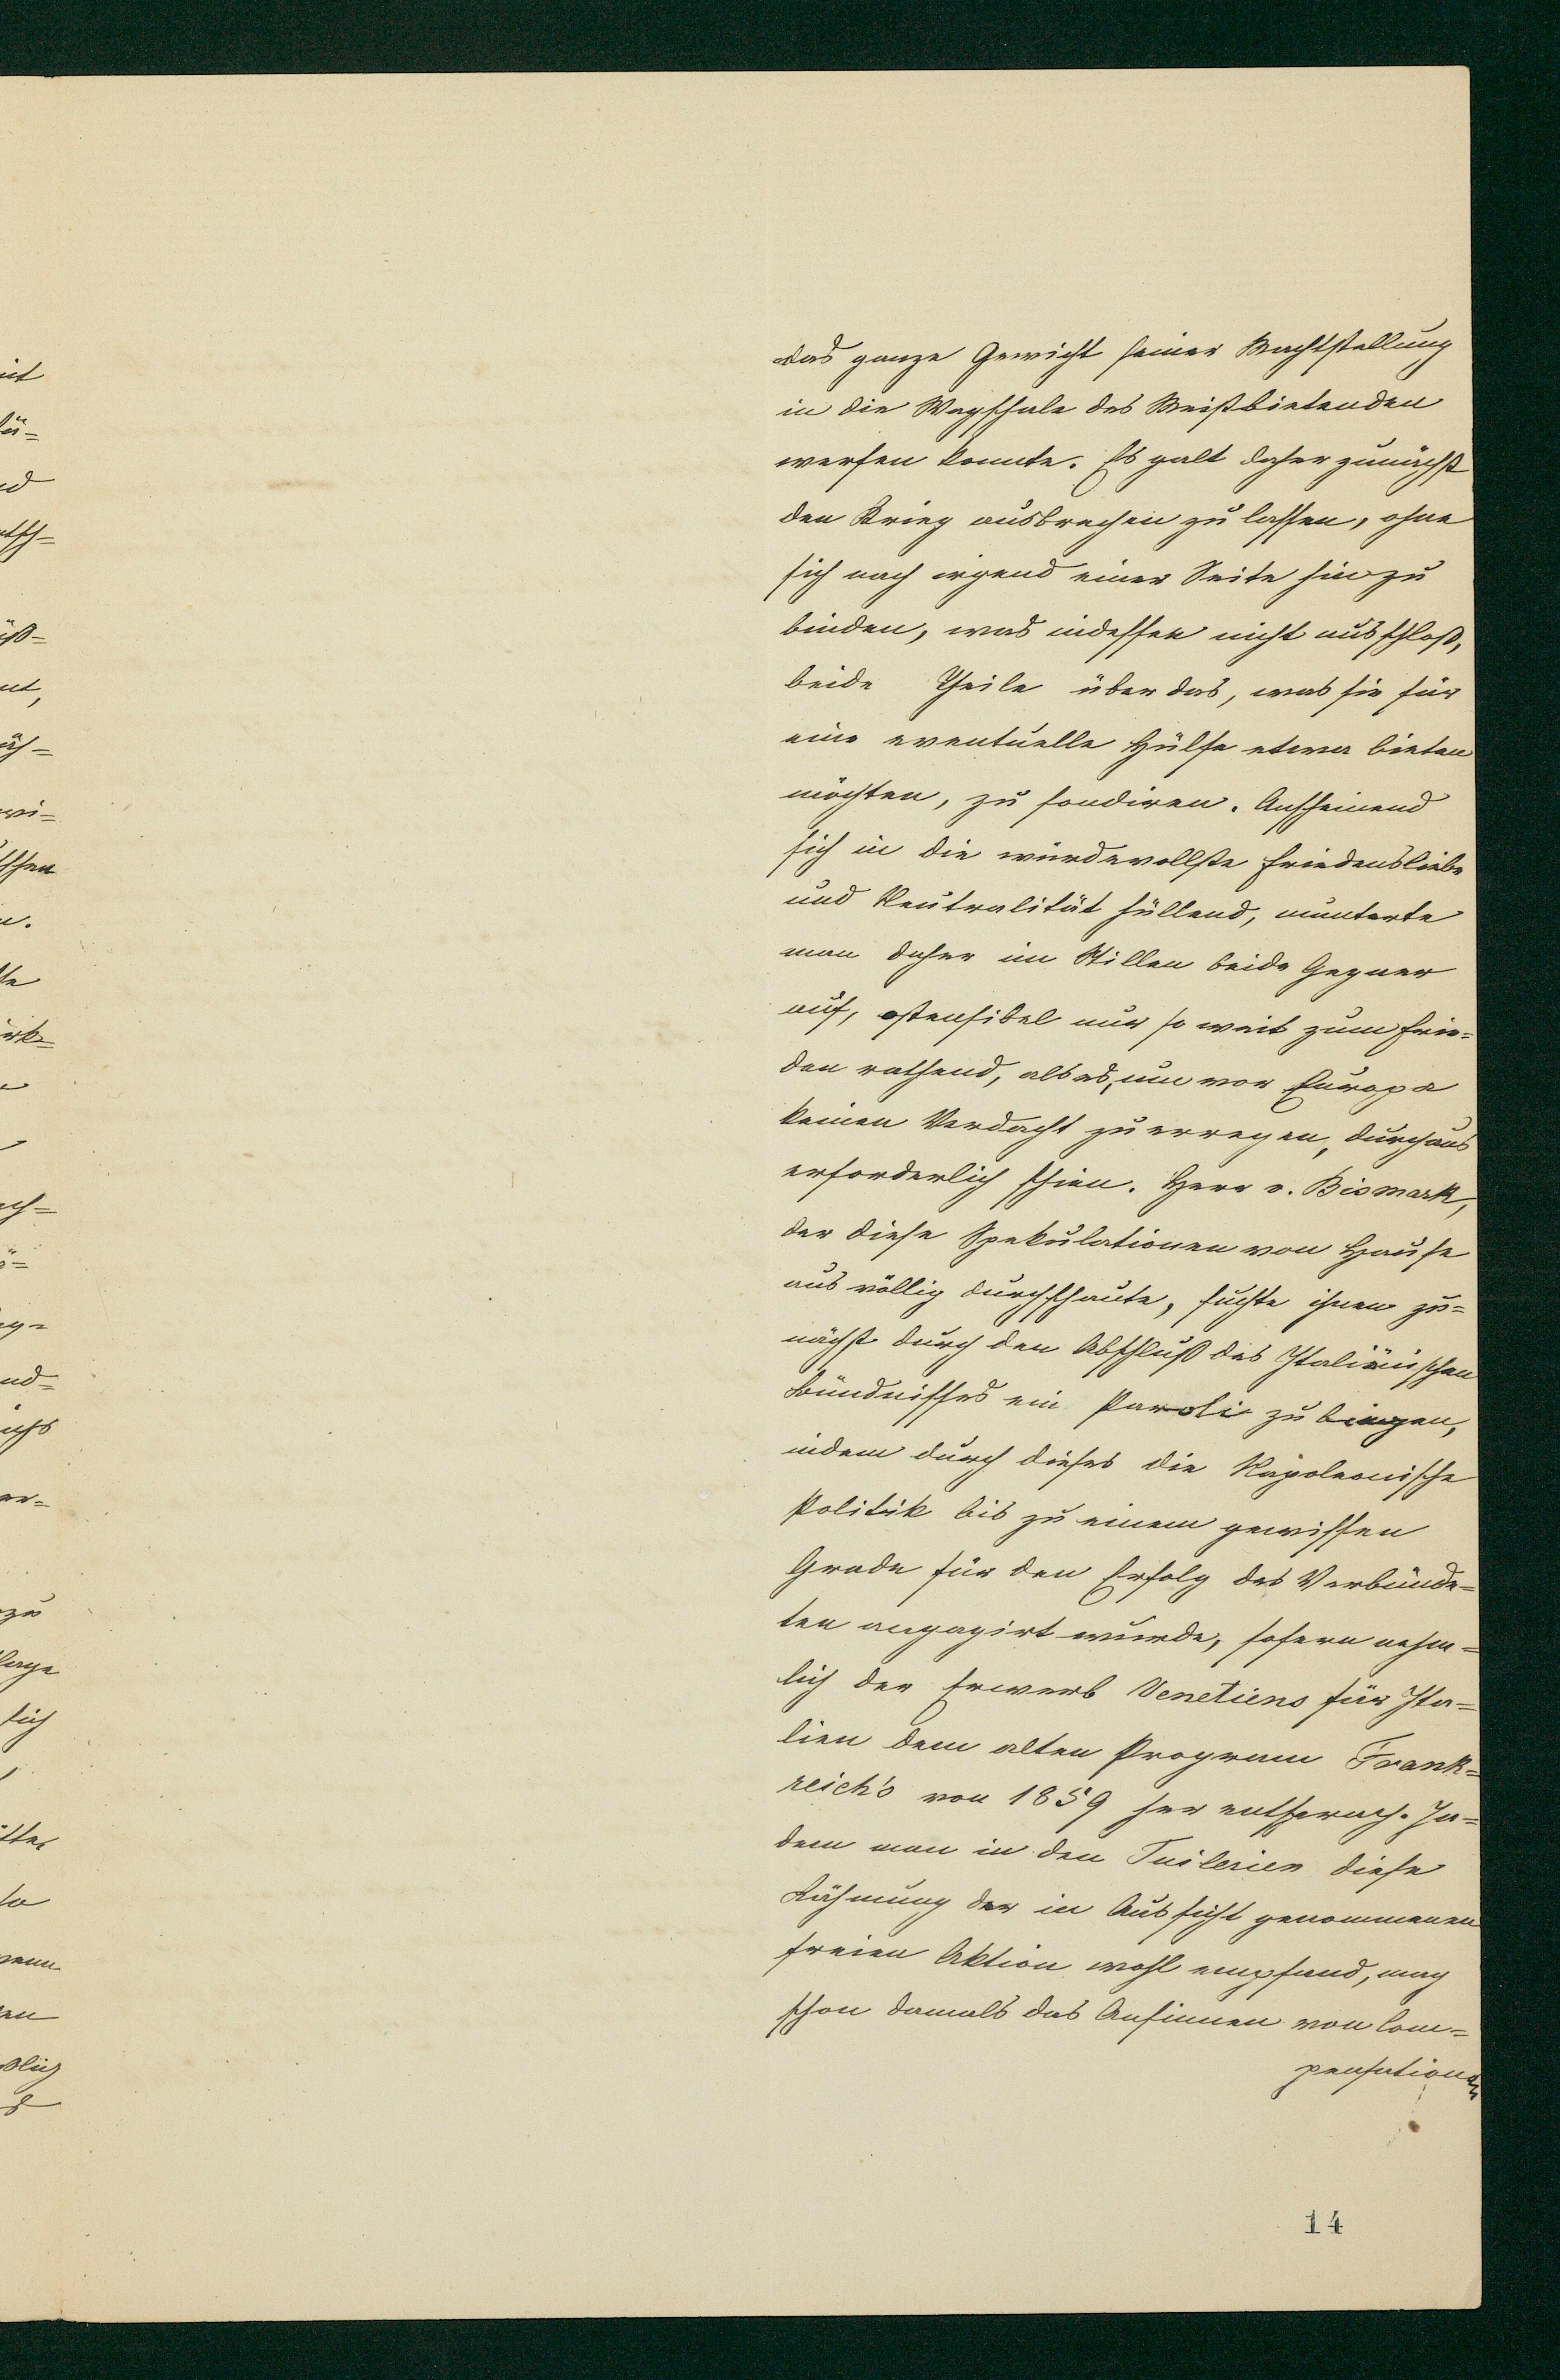 das ganze Gewicht seiner Machtstellung
in die Wagschale des Meistbietenden
werfen konnte. Es galt daher zunächst
den Krieg ausbrechen zu lassen, ohne
sich nach irgend einer Seite hin zu
binden, was indessen nicht ausschloß,
beide Theile über das, was sie für
eine eventuelle Hülfe etwa bieten
möchten, zu sondiren. Anscheinend
sich in die würdevollste Friedensliebe
und Neutralität hüllend, munterte
man daher im Stillen beide Gegner
auf, ostensibel nur so weit zum Frie=
den rathend, als es, um vor Europa
keinen Verdacht zu erregen, durchaus
erforderlich schien. Herr v. Bismark,
der diese Spekulationen von Hause
aus völlig durchschaute, suchte ihnen zu=
nächst durch den Abschluß des Italiänischen
Bündnisses ein Paroli zu biegen,
indem durch dieses die Napoleonische
Politik bis zu einem gewissen
Grade für den Erfolg des Verbünde=
ten engagirt wurde, sofern nehm=
lich der Erwerb Venetiens für Ita=
lien dem alten Programm Frank=
reich's von 1859 her entsprach. In=
dem man in den Tuilerien diese
Lähmung der in Aussicht genommenen
freien Aktion wohl empfand, mag
schon damals das Ansinnen von Com=
pensationen
14